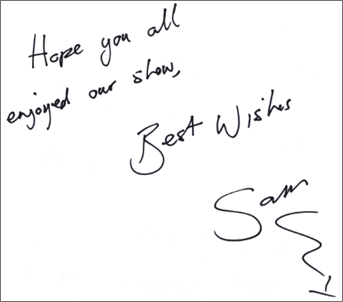 Hope you all
enjoyed our show,
Best Wishes
Sam